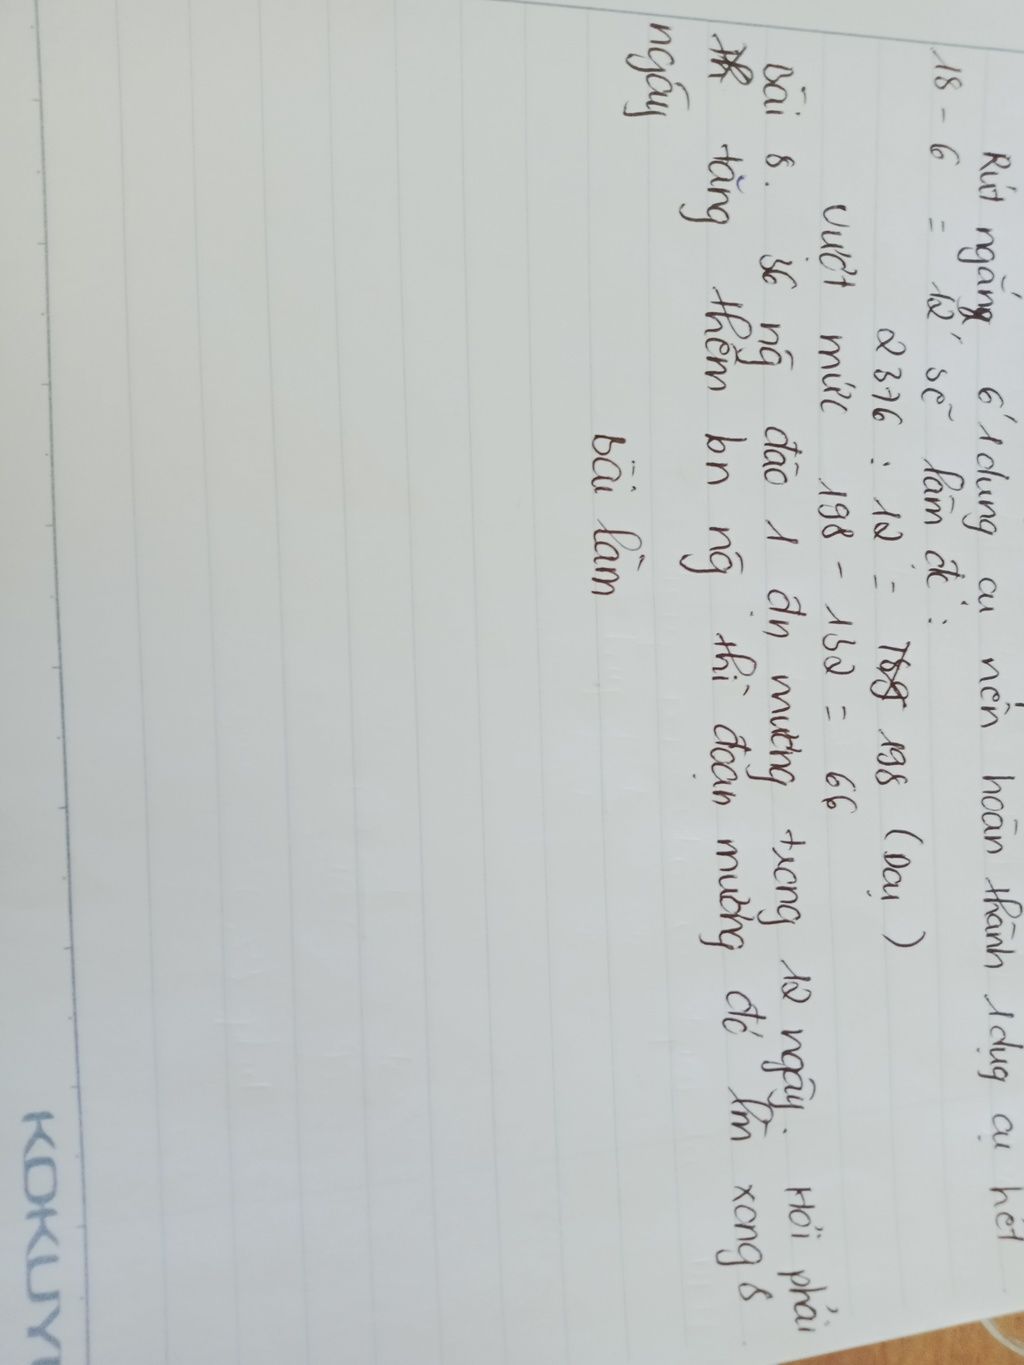 Rút ngắng 6' 1 dung cụ nên hoàn thành 1 dụg cụ hết
18 - 6 = 12' sẽ làm đc:
2376 : 12 = 198 (DCụ)
Vượt mức 198 - 132 = 66
Bài 8. 36 ng đào 1 đn mương trong 12 ngày. Hỏi phải
tăng thêm bn ng thì đoạn mương đó lm xong 8
ngày
Bài làm
KOKUY